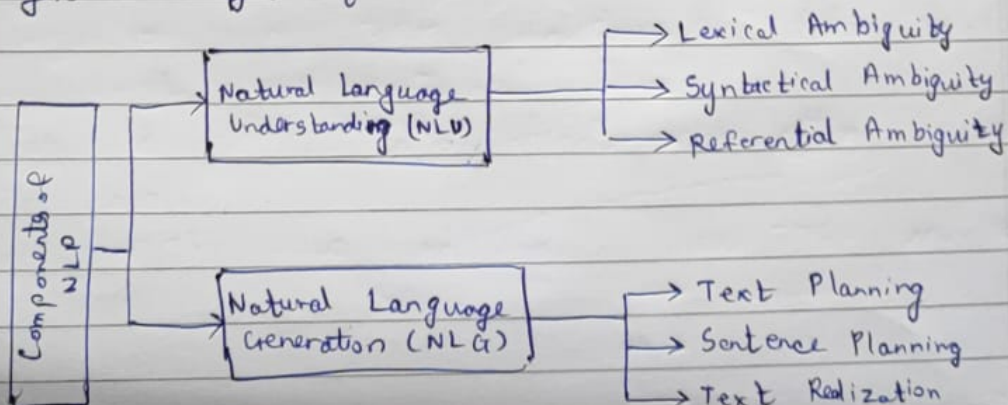 Natural Language
Understanding (NLU)
Lexical Ambiguity
Syntactical Ambiguity
Referential Ambiguity
Components of
NLP
Natural Language
Generation (NLG)
Text Planning
Sentence Planning
Text Realization